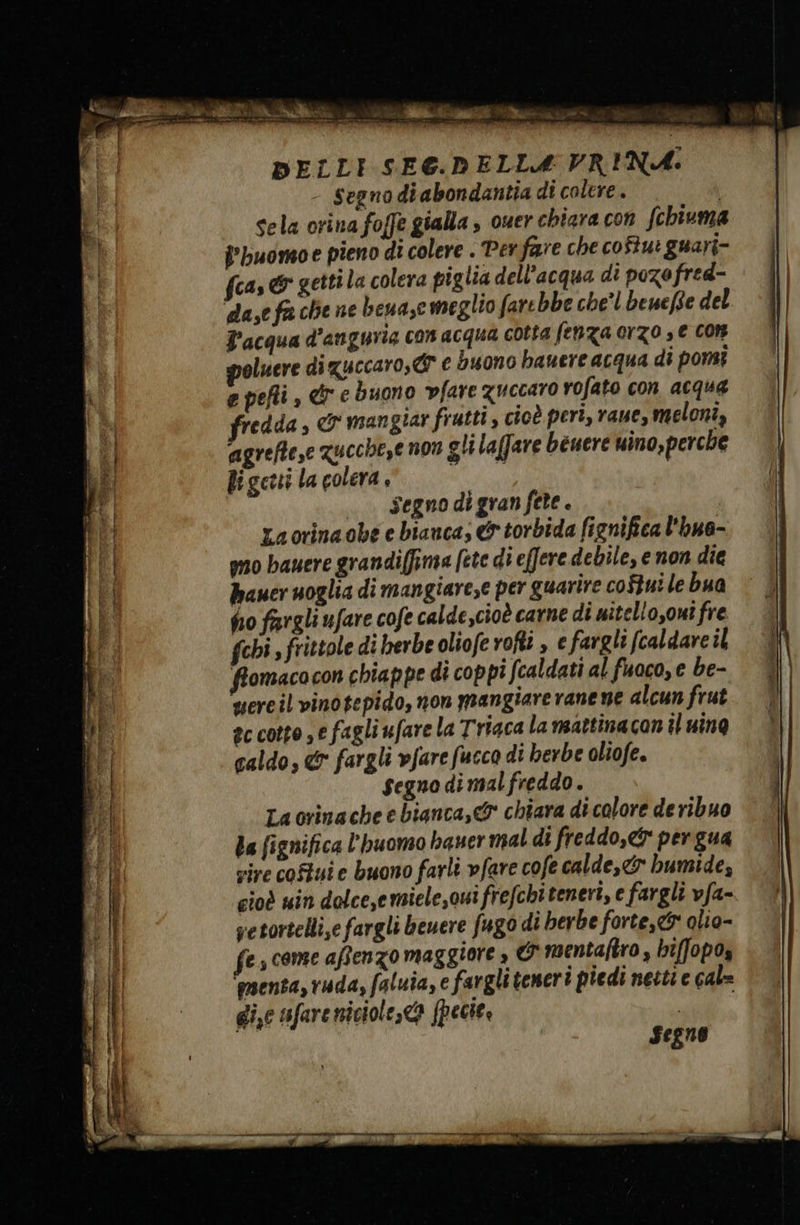 DELLI SEG. DELLA VRINA.
Segno di abondantia di colere.
Se la orina fosse gialla, ouer chiara con schiuma
l'huomo e pieno di colere. Per fare che costui guari-
sca, & getti la colera piglia dell'acqua di pozo fred-
da, e fa che ne beua, e meglio sarebbe che'l beuesse del
l'acqua d'anguria con acqua cotta senza orzo, e con
poluere di zuccaro, & e buono hauere acqua di pomi
e pesti, & e buono vsare zuccaro rosato con acqua
fredda, & mangiar frutti, cioè peri, raue, meloni,
agreste, e zucche, e non gli lassare beuere uino, perche
li getti la colera.
Segno di gran sete.
La orina che e bianca, & torbida significa l'huo-
mo hauere grandissima sete di essere debile, e non die
hauer uoglia di mangiare, e per guarire costui le bua
no fargli usare cose calde, cioè carne di uitello, oui fre
schi, frittole di herbe oliose rosti, e fargli scaldare il
stomaco con chiappe di coppi scaldati al fuoco, e be-
uere il vino tepido, non mangiare rane ne alcun frut
to cotto, e fagli usare la Triaca la mattina con il uino
caldo, & fargli vsare succo di herbe oliose.
Segno di mal freddo.
La orina che e bianca, & chiara di colore de ribuo
la significa l'huomo hauer mal di freddo, & per gua
rire costui e buono farli vsare cose calde, & humide,
cioè uin dolce, e miele, oui freschi teneri, e fargli vsa-
re tortelli, e fargli beuere sugo di herbe forte, & olio-
se, come assenzo maggiore, & mentastro, hissopo,
menta, ruda, saluia, e fargli tener i piedi netti e cal-
di, e usare niciole, & specie.
Segno